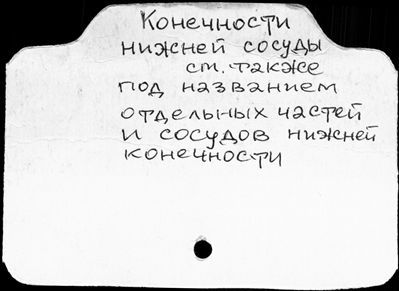 Конечности
нижней сосуды
см. также
под названием
отдельных частей
и сосудов нижней
конечности